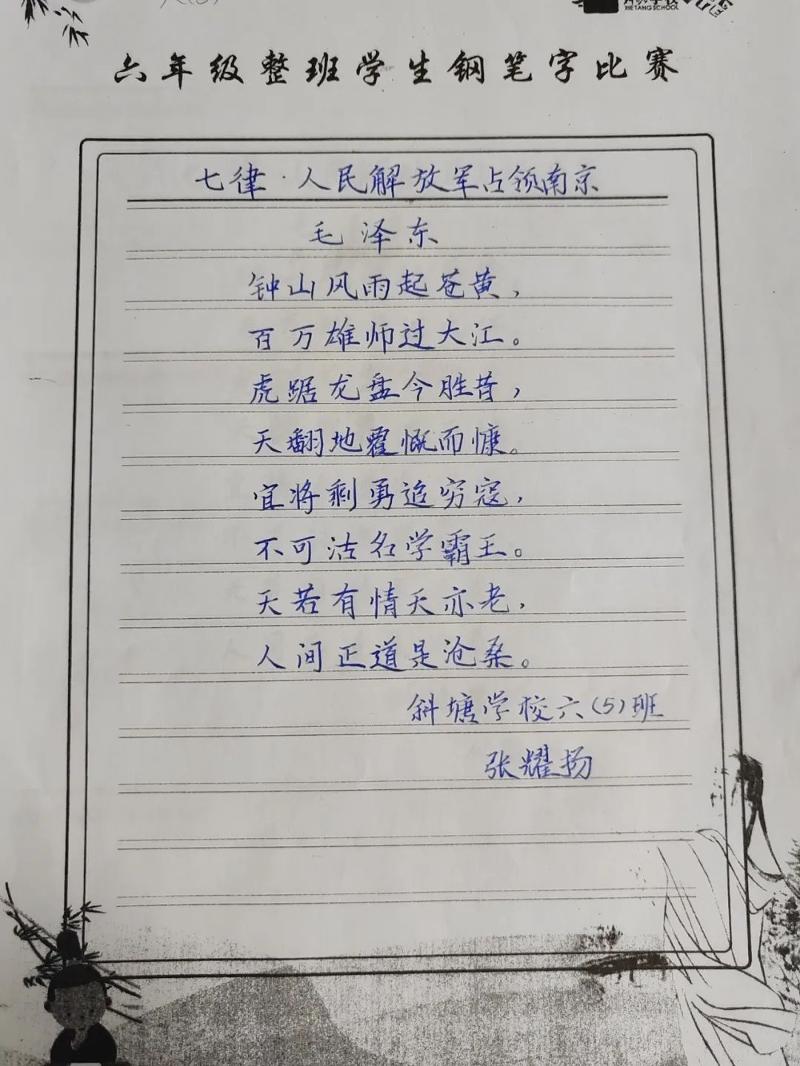 六年级整班学生钢笔字比赛
七律·人民解放军占领南京
毛泽东
钟山风雨起苍黄，
百万雄师过大江。
虎踞龙盘今胜昔，
天翻地覆慨而慷。
宜将剩勇追穷寇，
不可沽名学霸王。
天若有情天亦老，
人间正道是沧桑。
斜塘学校六（5）班
张耀扬